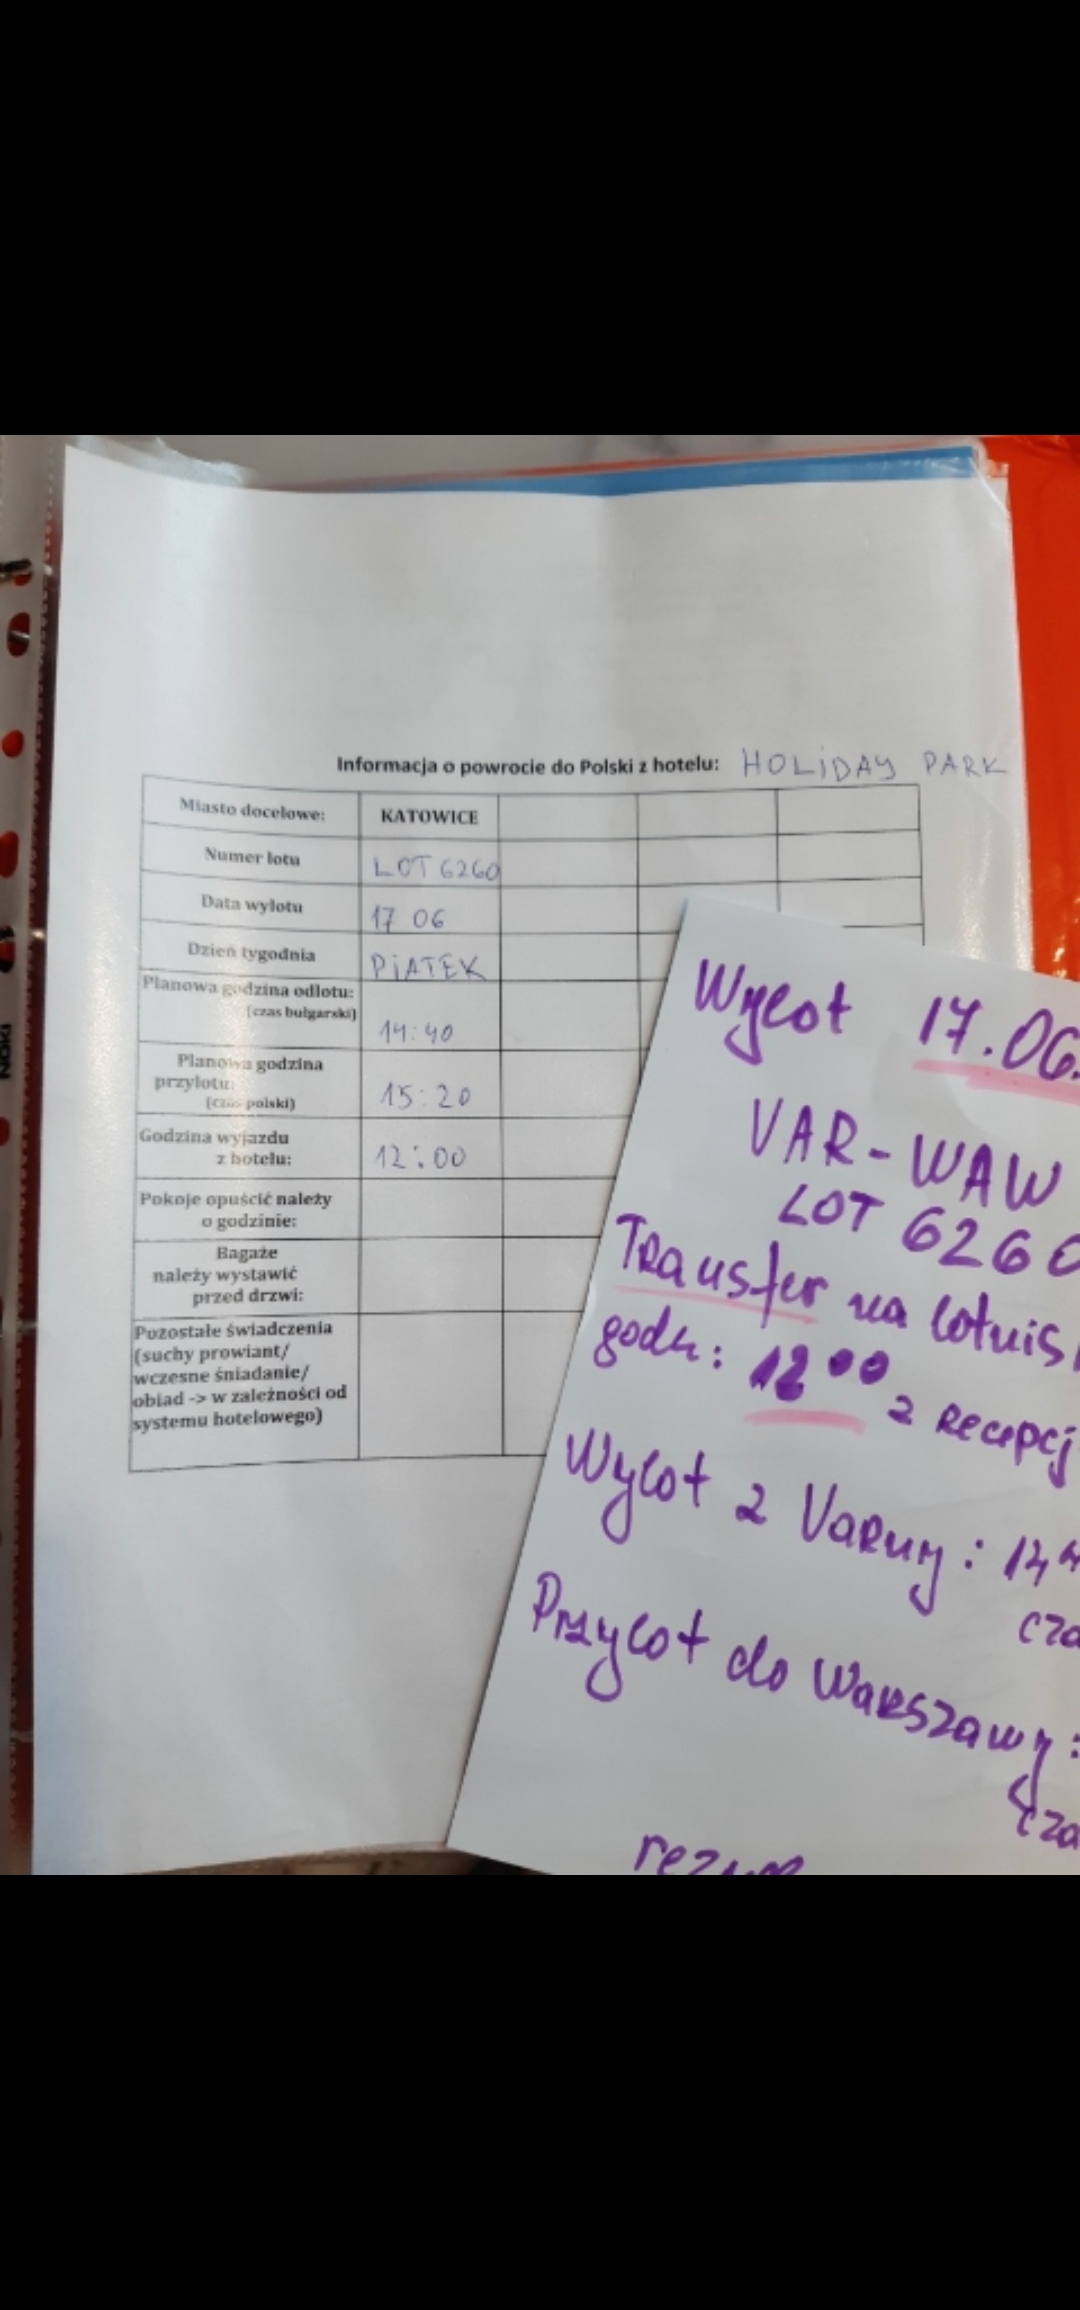 Informacja o powrocie do Polski z hotelu: HOLiDAY PARK
Miasto docelowe: KATOWICE
Numer lotu LOT 6260
Data wylotu 17 06
Dzień tygodnia PiATEK
Planowa godzina odlotu:
(czas bułgarski) 14:40
Planowa godzina
przylotu:
(czas polski) 15:20
Godzina wyjazdu
z hotelu: 12:00
Pokoje opuścić należy
o godzinie:
Bagaże
należy wystawić
przed drzwi:
Pozostałe świadczenia
(suchy prowiant/
wczesne śniadanie/
obiad -> w zależności od
systemu hotelowego)
Wylot 17.06.
VAR-WAW
LOT 6260
Transfer na lotnis
godz: 12 00 z Recepcj
Wylot z Varny: 14 4
cza
Przylot do Warszawy:
cza